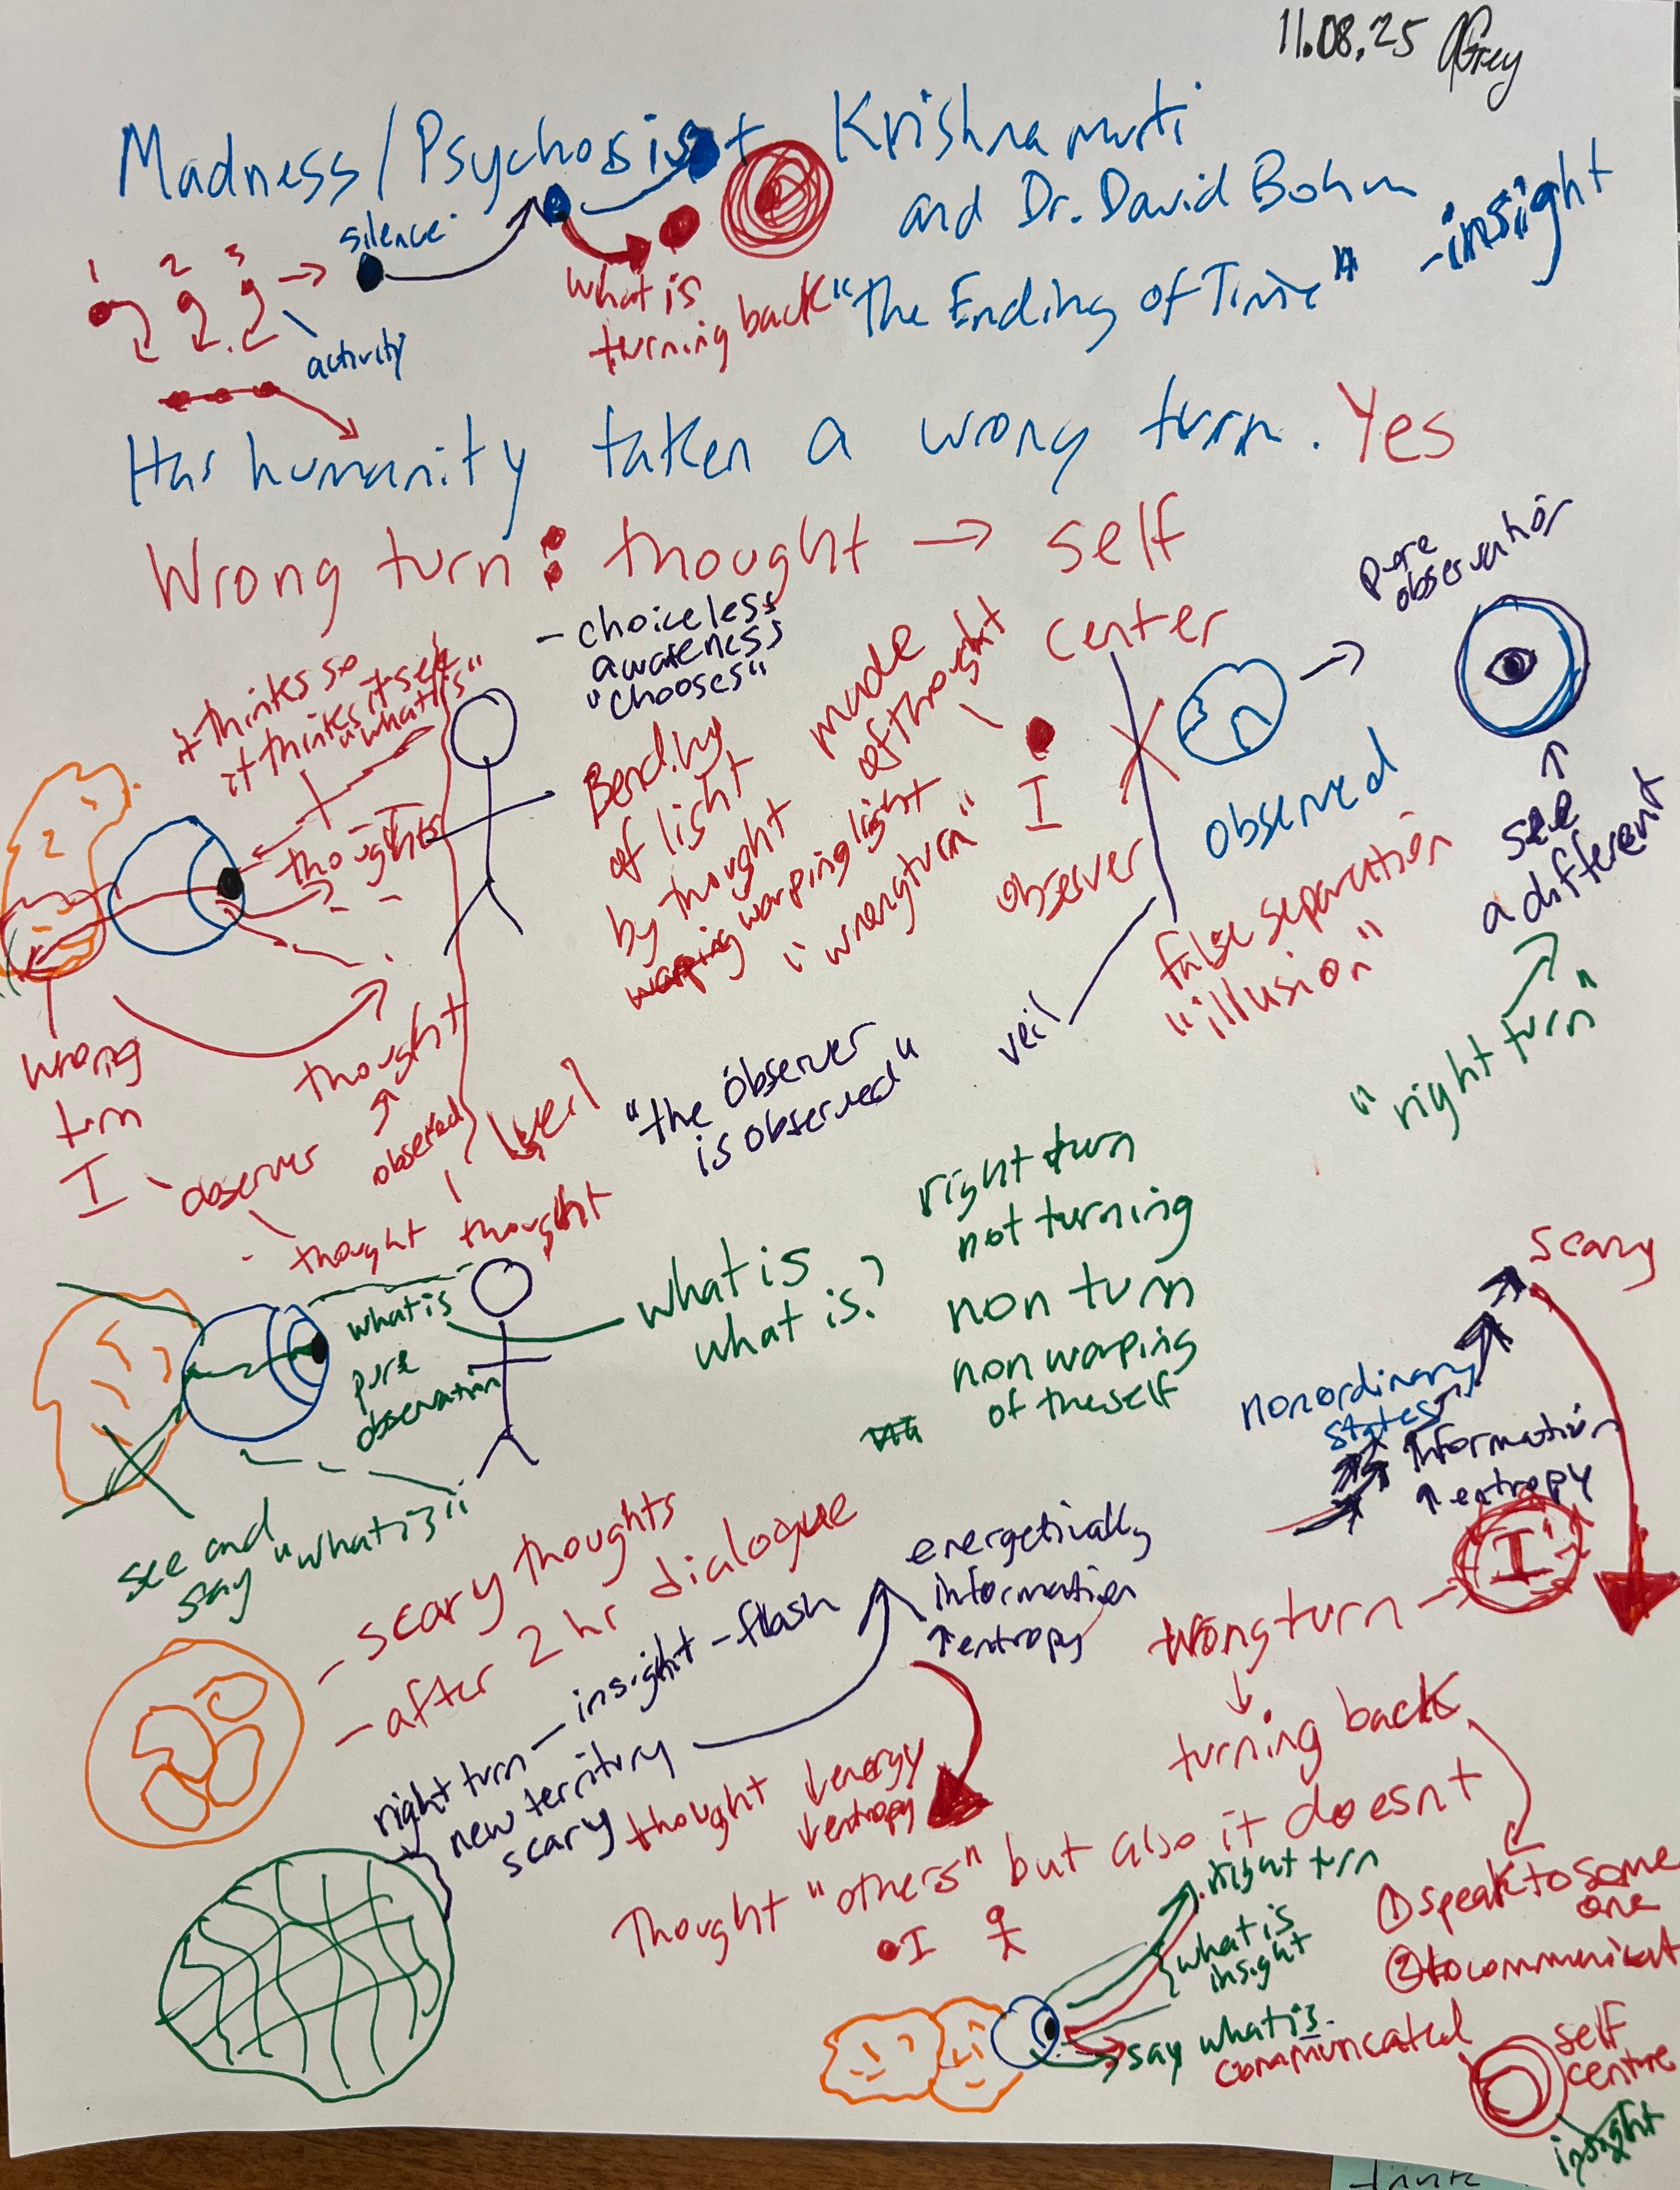 11.08.25 AGrey
Madness/Psychosis + Krishnamurti
and Dr. David Bohm
-insight
"The Ending of Time"
silence
1 2 3
activity
what is
turning back
Has humanity taken a wrong turn. Yes
Wrong turn: thought → self
center
- choiceless
awareness
"chooses"
pure
observation
it thinks so
it thinks itself
"what is"
thoughts
Bending
of light
by thought
warping light
"wrong turn"
made
of thought
I
observer
observed
false separation
"illusion"
veil
see
a different
"right turn"
wrong
turn
I
observer
thought
observed
veil
thought thought
"the observer
is observed"
right turn
not turning
non turn
non warping
of the self
what is
what is?
what is
pure
observation
see and
say "what is"
scary
nonordinary
states
↑ information
↑ entropy
I
wrong turn
↓
turning back
① speak to some
one
② to communicat
- scary thoughts
- after 2 hr dialogue
energetically
information
↑ entropy
right turn - insight - flash
new territory
scary
thought ↓ energy
↓ entropy
Thought "others" but also it doesnt
I
right turn
what is
insight
say what is.
communicated
self
centre
insight